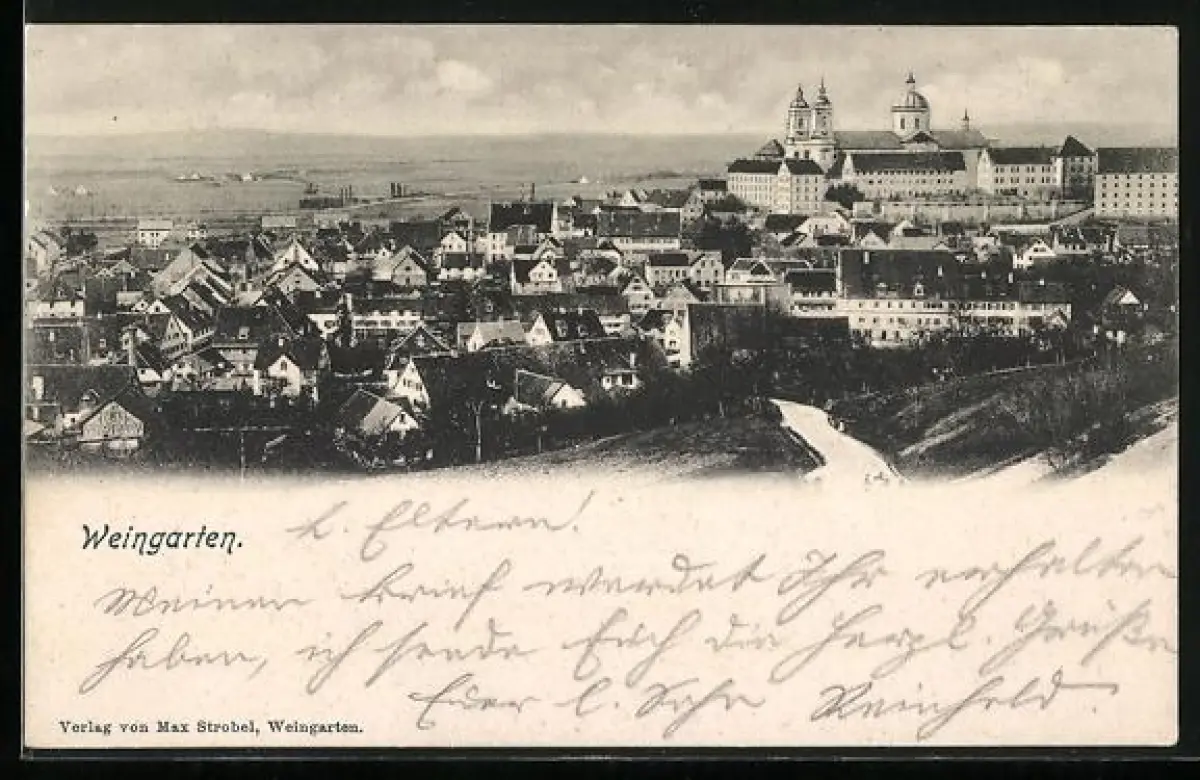 Weingarten.
L. Eltern!
Meinen Brief werdet Ihr erhalten
haben, ich sende Euch die herzl. Grüße
Euer l. Sohn Reinhold.
Verlag von Max Strobel, Weingarten.